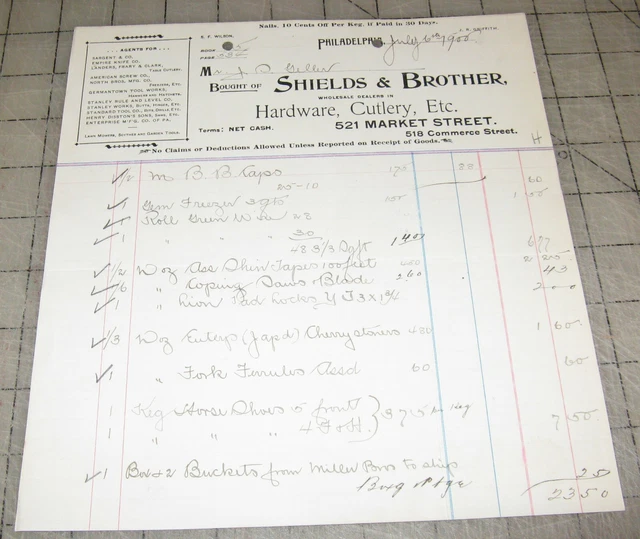 Nails, 10 Cents Off Per Keg, if Paid in 30 Days.
E. F. WILSON.
J. S. GRIFFITH
BOOK
PAGE
PHILADELPHIA, July 6th 1900
Mr J. D. Geller
BOUGHT OF SHIELDS & BROTHER,
WHOLESALE DEALERS IN
Hardware, Cutlery, Etc.
Terms: NET CASH.
521 MARKET STREET.
518 Commerce Street.
AGENTS FOR
SARGENT & CO.
EMPIRE KNIFE CO.
LANDERS, FRARY & CLARK,
Table Cutlery.
AMERICAN SCREW CO.
NORTH BROS. MFG. CO.
Freezers, Etc.
GERMANTOWN TOOL WORKS,
Hammers and Hatchets.
STANLEY RULE AND LEVEL CO.
STANLEY WORKS, Butts, Hinges, Etc.
STANDARD TOOL CO., Bits, Drills, Etc.
HENRY DISSTON'S SONS, Saws, Etc.
ENTERPRISE M'F'G. CO. OF PA.
Lawn Mowers, Scythes and Garden Tools.
No Claims or Deductions Allowed Unless Reported on Receipt of Goods.
H
1/2 M B. B Caps 175 88
25-10 60
1 Gem Freezer 3 qts 155 1 55
1 Roll Green Wire 28
1 " " 30
48 3/3 Sqft 1 40 677
1/2 Doz Ass Skin Tapes 100 feet 450 2 25
1/6 " Coping Saws Blade 260 43
1 " Lion Pad Locks 2 00
1/3 Doz Enterp (Japd) Cherry stoners 480 1 60
1 " Fork Ferrules Assd 60 60
1 Keg Horse Shoes 5 front
1 " " 4 F & H. 375 per Keg 7 50
1 Box & 2 Buckets from Miller Bros to ship
25
23 50